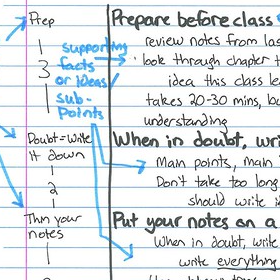 Prep
1
3
1
supporting
facts
or ideas/
sub-
points
Doubt=Write
it down
1
2
1
Thin your
notes
Prepare before class
review notes from las
look through chapter t
idea this class le
takes 20-30 mins, bu
understanding
When in doubt, wri
Main points, main
Don't take too long
should write i
Put your notes on a
When in doubt, write
write everything